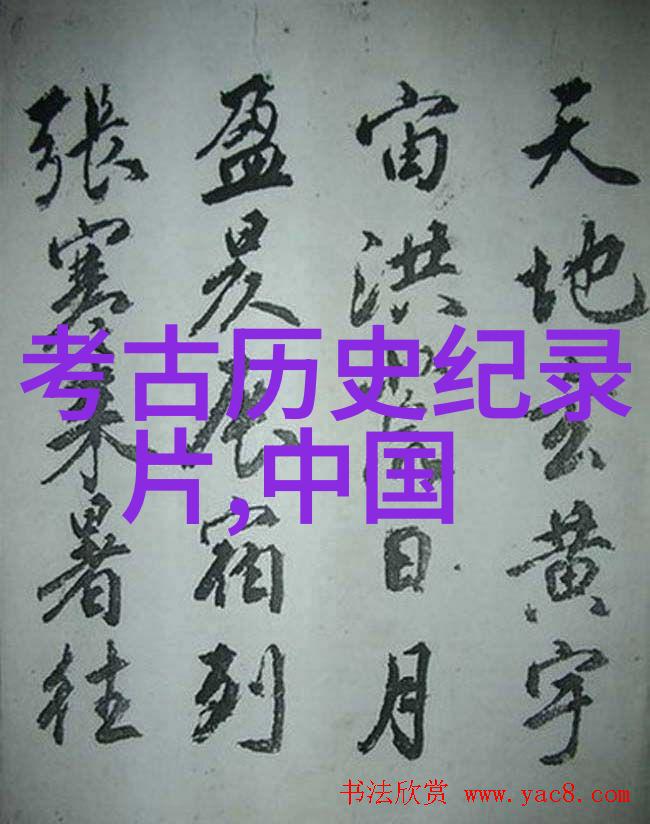 天地玄黄宇
宙洪荒日月
盈昃辰宿列
張寒来暑往
考古历史纪录
片,中国
书法欣赏 www.yac8.com